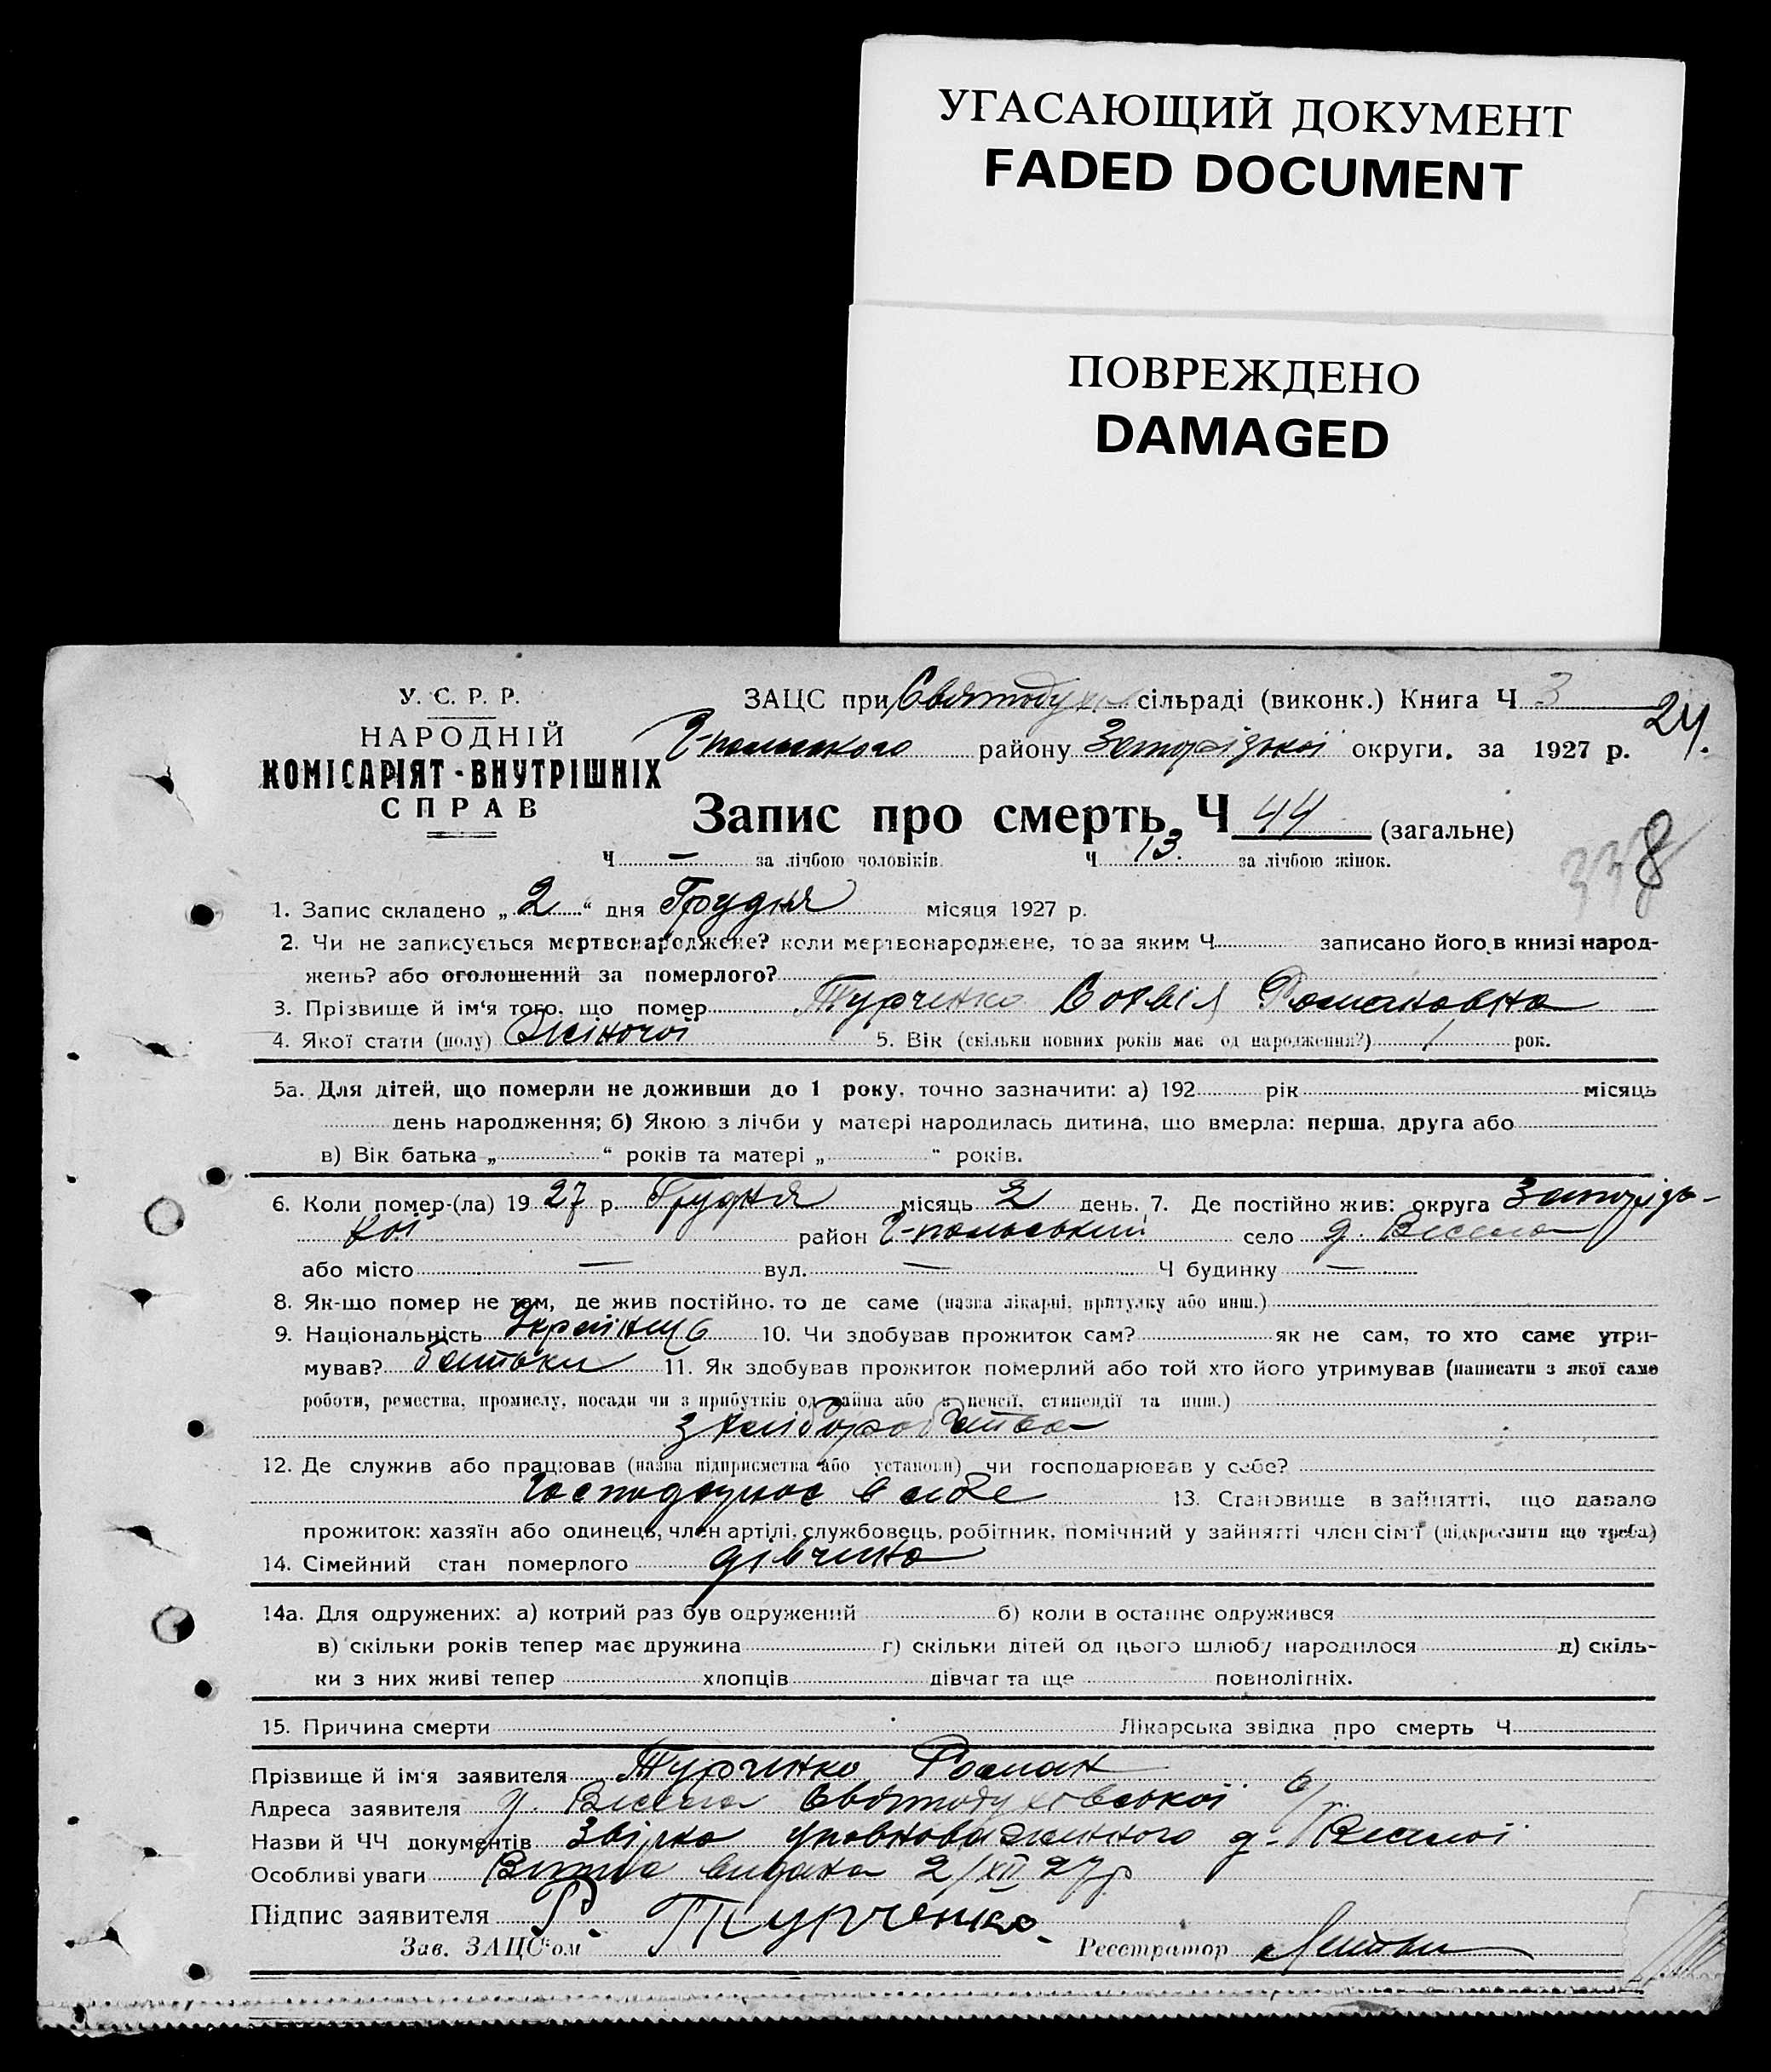 УГАСАЮЩИЙ ДОКУМЕНТ
FADED DOCUMENT
ПОВРЕЖДЕНО
DAMAGED
У. С. Р. Р.
НАРОДНІЙ
КОМІСАРІЯТ - ВНУТРІШНІХ
СПРАВ
ЗАЦС при Святодухів сільраді (виконк.) Книга Ч 3
24.
Г-польського району Запорізької округи, за 1927 р.
Запис про смерть Ч 44 (загальне)
Ч — за лічбою чоловіків. Ч 13. за лічбою жінок.
338
1. Запис складено „ 2 “ дня Грудня місяця 1927 р.
2. Чи не записується мертвонароджене? коли мертвонароджене, то за яким Ч записано його в книзі народ-
жень? або оголошений за померлого?
3. Прізвище й ім'я того, що помер Турченко Романовна
4. Якої стати (полу) Жіночої 5. Вік (скільки повних років має од народження?) 1 рок.
5а. Для дітей, що померли не доживши до 1 року, точно зазначити: а) 192 рік місяць
день народження; б) Якою з лічби у матері народилась дитина, що вмерла: перша, друга або
в) Вік батька „ “ років та матері „ “ років.
6. Коли помер-(ла) 19 27 р. Грудня місяць 2 день. 7. Де постійно жив: округа Запорізь-
кої район Г-польський село д. Весела
або місто — вул. — Ч будинку —
8. Як-що помер не там, де жив постійно, то де саме (назва лікарні, притулку або инш.)
9. Національність 10. Чи здобував прожиток сам? як не сам, то хто саме утри-
мував? батьки 11. Як здобував прожиток померлий або той хто його утримував (написати з якої само
роботи, ремества, промислу, посади чи з прибутків од майна або з пенсії, стипендії та инш.)
з хліборобства
12. Де служив або працював (назва підприємства або установи) чи господарював у себе?
в себе 13. Становище в зайнятті, що давало
прожиток: хазяїн або одинець, член артілі, службовець, робітник, помічний у зайнятті член сім'ї (підкреслити що треба)
14. Сімейний стан померлого дівчина
14а. Для одружених: а) котрий раз був одружений б) коли в останнє одружився
в) скільки років тепер має дружина г) скільки дітей од цього шлюбу народилося д) скіль-
ки з них живі тепер хлопців дівчат та ще повнолітніх.
15. Причина смерти Лікарська звідка про смерть Ч
Прізвище й ім'я заявителя Турченко Роман
Адреса заявителя д. Весела Святодухівської с/р
Назви й ЧЧ документів Звірка уповноваженного д. Веселої
Особливі уваги видана 2/XII 27 р
Підпис заявителя Р. Турченко.
Зав. ЗАЦС'ом Реєстратор